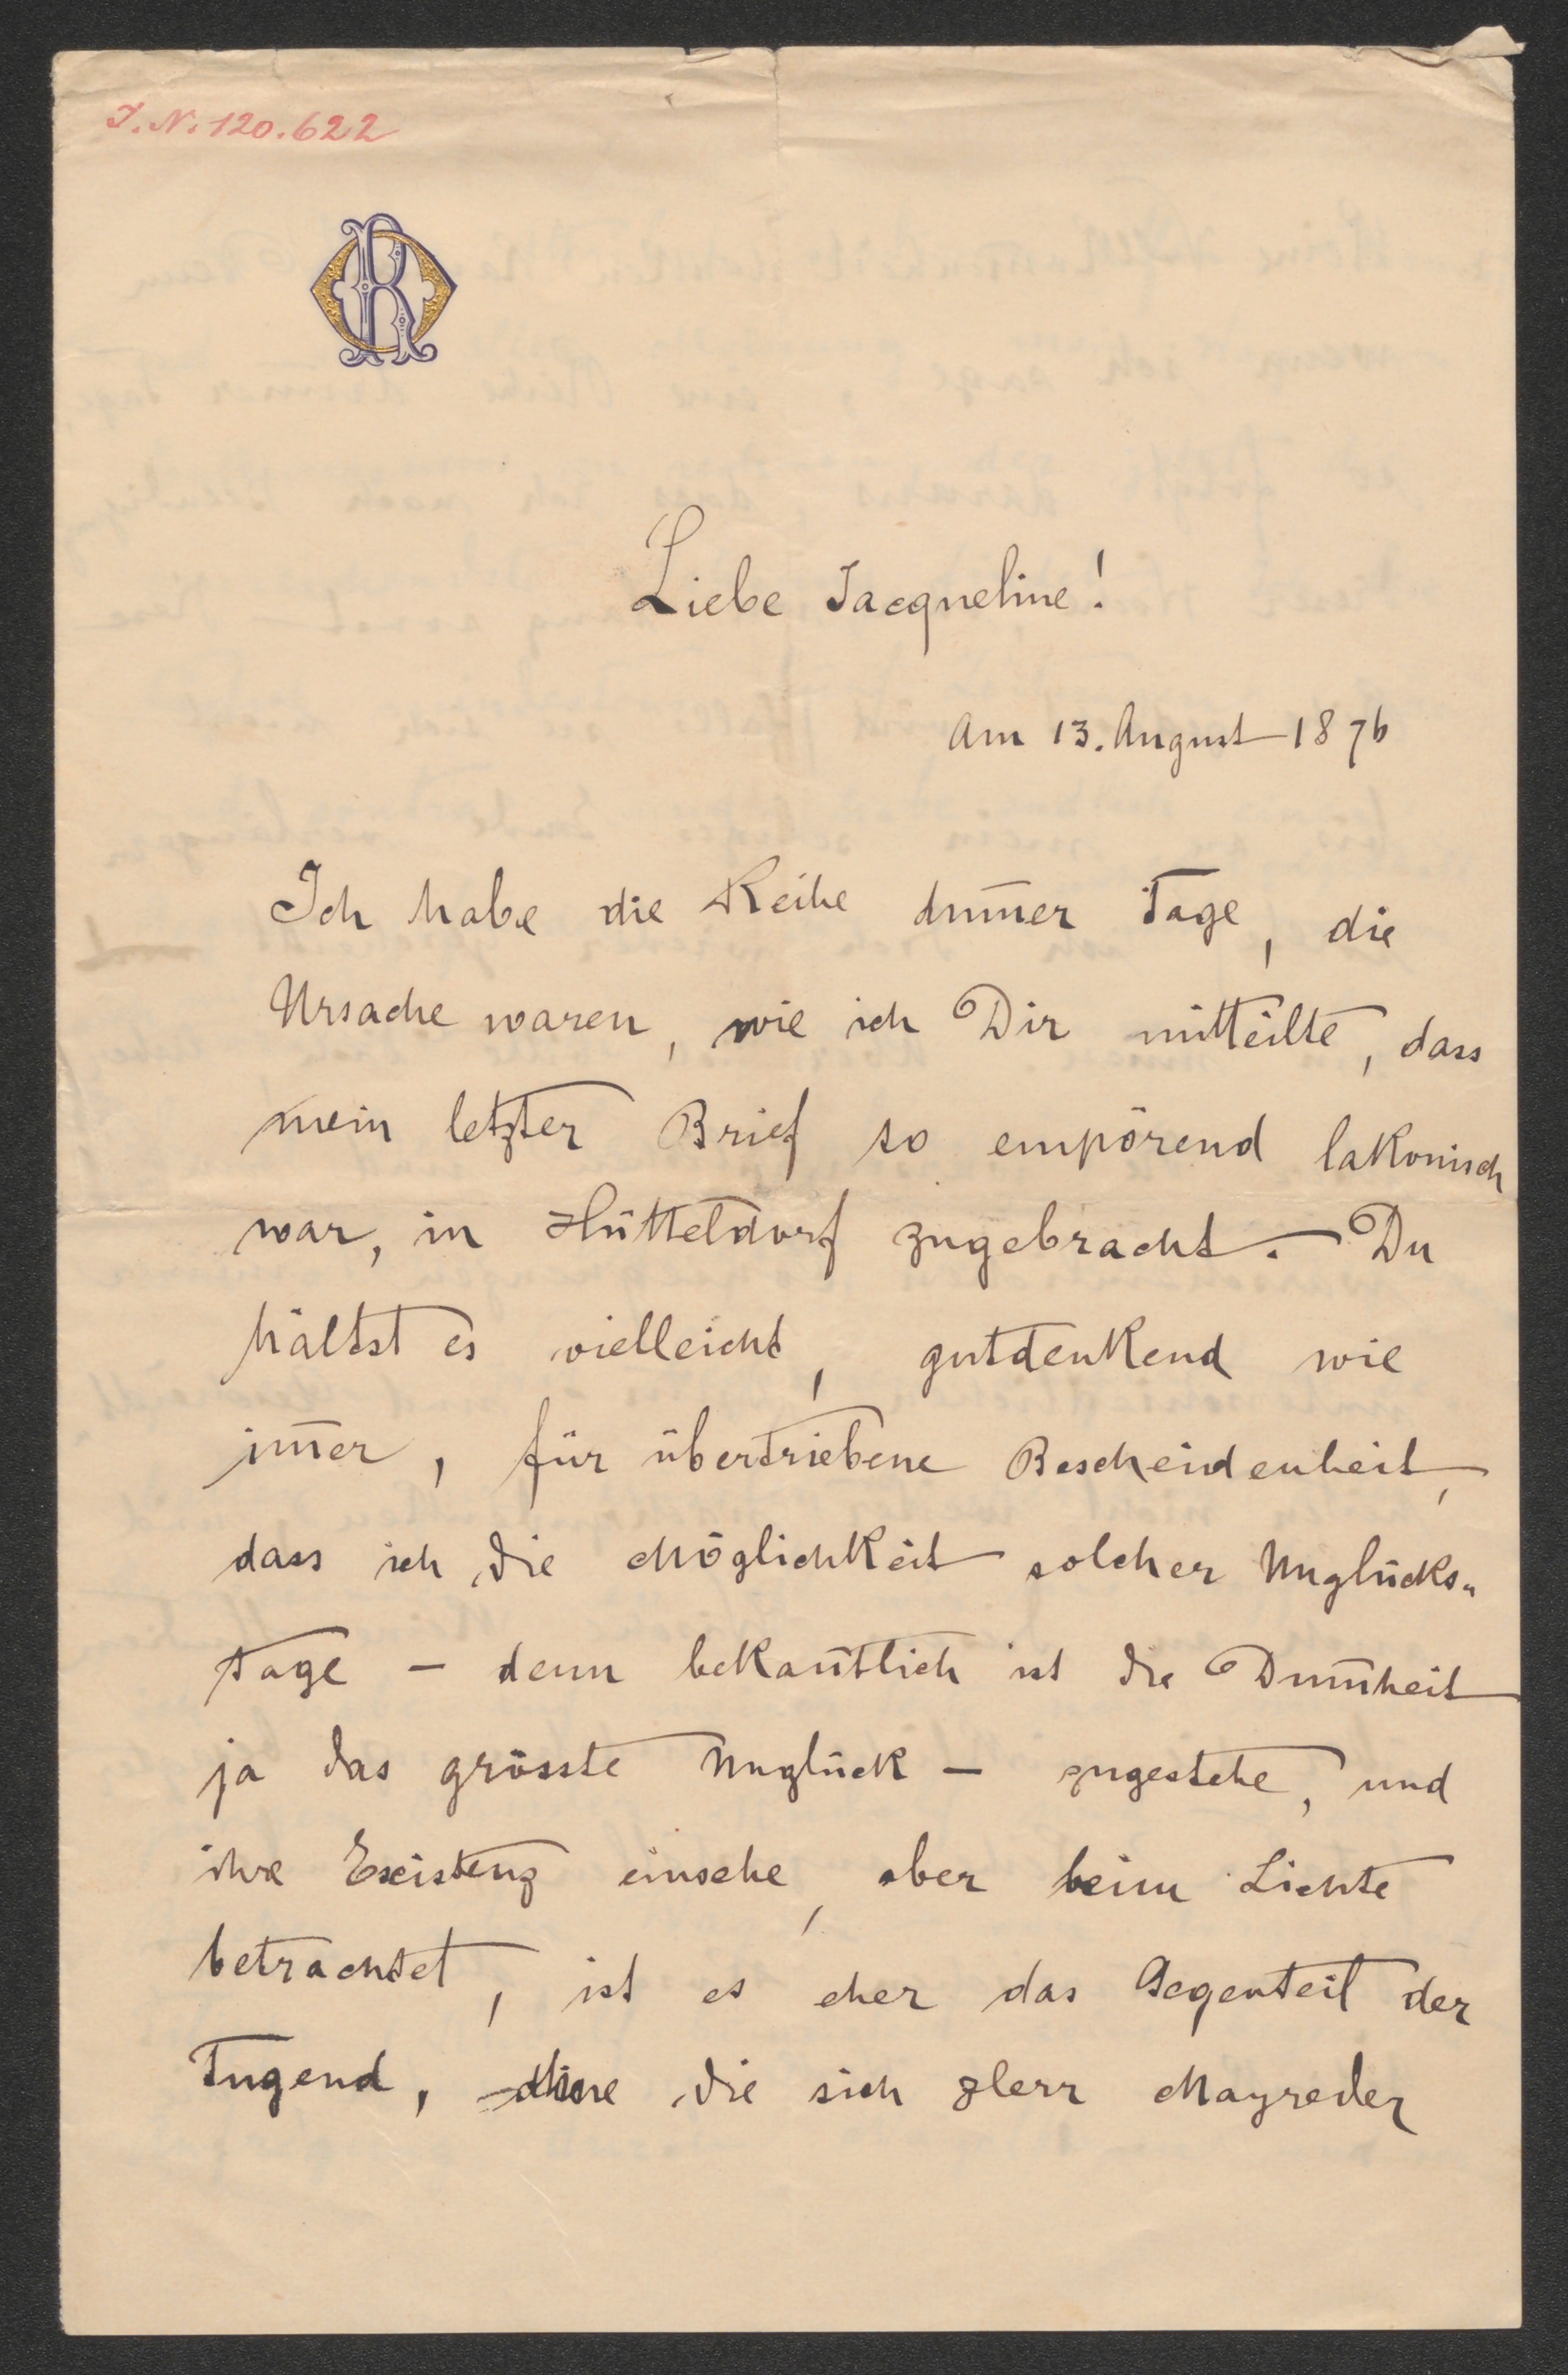 I.N. 120.622
Liebe Jacqueline!
Am 13. August 1876
Ich habe die Reihe dum̄er Tage, die
Ursache waren, wie ich Dir mitteilte, dass
mein letzter Brief so empörend lakonisch
war, in Hütteldorf zugebracht. Du
hältst es vielleicht, gutdenkend wie
im̄er, für übertriebene Bescheidenheit,
dass ich die Möglichkeit solcher Unglücks„
tage – denn bekan̄tlich ist die Dum̄heit
ja das grösste Unglück – zugestehe, und
ihre Existenz einsehe, aber beim Lichte
betrachtet, ist es eher das Gegenteil der
Tugend, ohne die sich Herr Mayreder